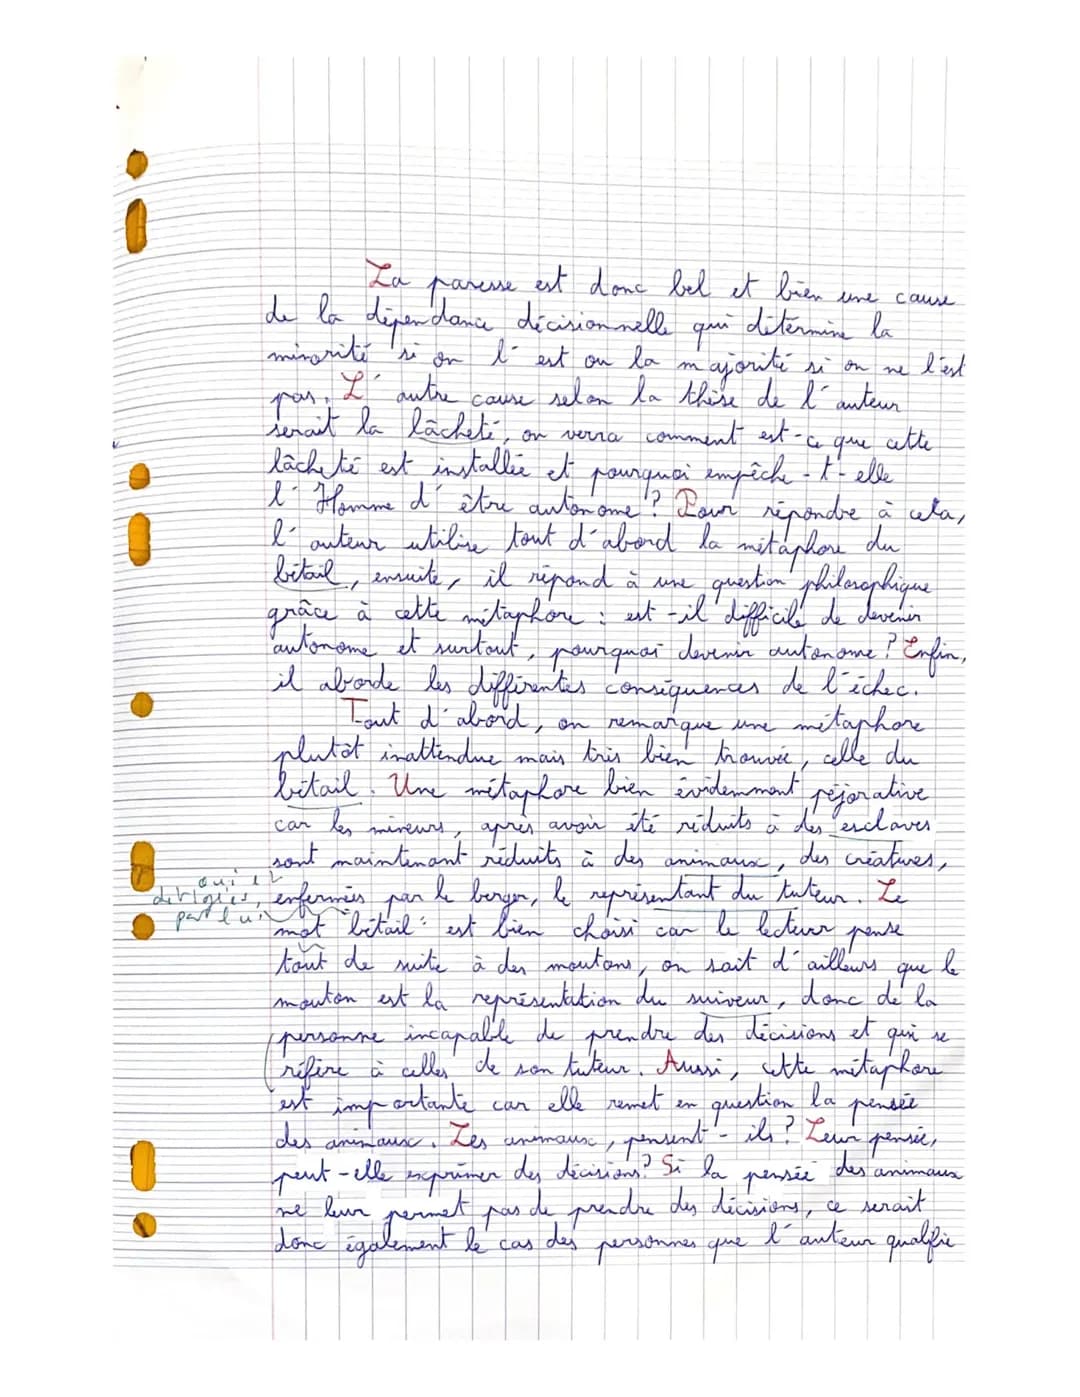 La paresse est donc bel et bien une cause
de la dépendance décisionnelle qui détermine la
minorité si on l'est ou la majorité si on ne l'est
pas. L'autre cause selon la thèse de l'auteur
serait la lâcheté, on verra comment est-ce que cette
lâcheté est installée et pourquoi empêche-t-elle
l'Homme d'être autonome ? Pour répondre à cela,
l'auteur utilise tout d'abord la métaphore du
bétail, ensuite, il répond à une question philosophique
grâce à cette métaphore : est-il difficile de devenir
autonome et surtout, pourquoi devenir autonome ? Enfin,
il aborde les différentes conséquences de l'échec.
Tout d'abord, on remarque une métaphore
plutôt inattendue mais très bien trouvée, celle du
bétail. Une métaphore bien évidemment péjorative
car les mineurs, après avoir été réduits à des esclaves
sont maintenant réduits à des animaux, des créatures,
oui et
dirigées,
par lui
enfermés par le berger, le représentant du tuteur. Le
mot "bétail" est bien choisi car le lecteur pense
tout de suite à des moutons, on sait d'ailleurs que le
mouton est la représentation du suiveur, donc de la
personne incapable de prendre des décisions et qui se
réfère à celles de son tuteur. Aussi, cette métaphore
est importante car elle remet en question la pensée
des animaux. Les animaux, pensent-ils ? Leur pensée,
peut-elle exprimer des décisions ? Si la pensée des animaux
ne leur permet pas de prendre des décisions, ce serait
donc également le cas des personnes que l'auteur qualifie